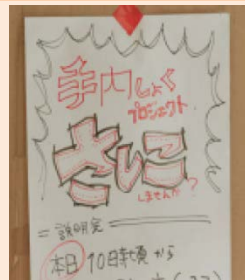 手内しょく
プロジェクト
さしこ
しませんか?
= 説明会 =
本日 10時頃から